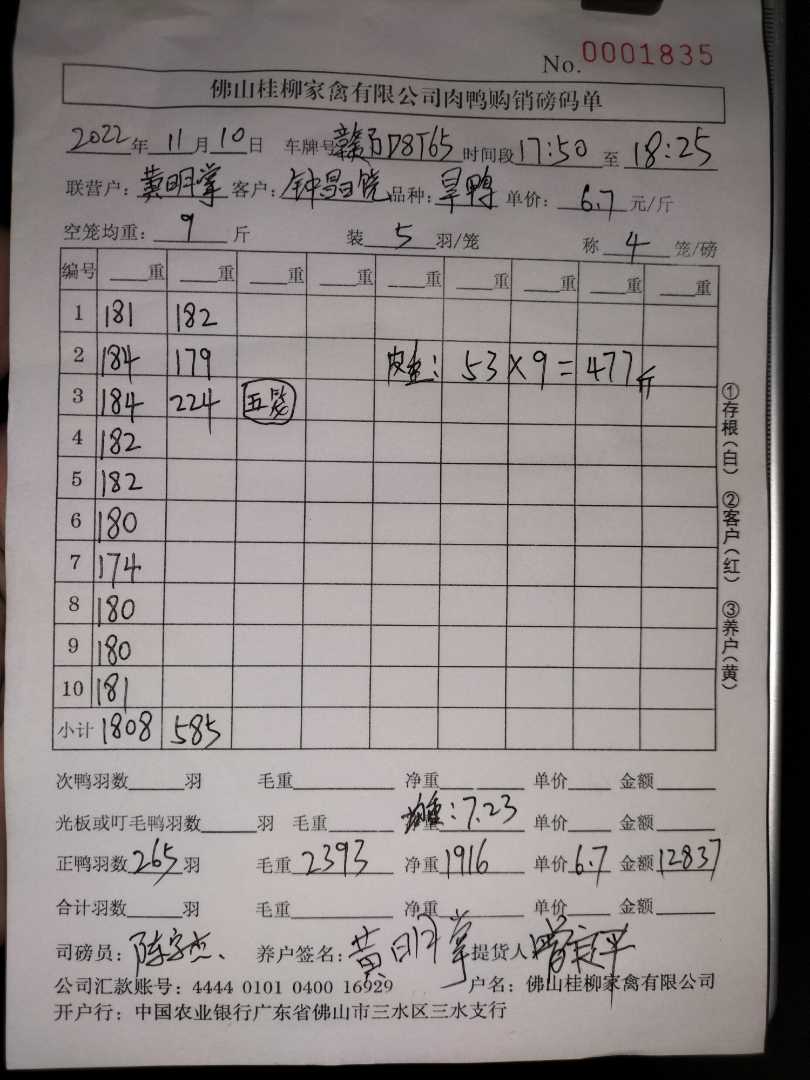 No. 0001835
佛山桂柳家禽有限公司肉鸭购销磅码单
2022年 11月 10日 车牌号 D8T65 时间段 17:50 至 18:25
联营户: 黄明掌 客户: 钟昌饶 品种: 旱鸭 单价: 6.7 元/斤
空笼均重: 9 斤 装 5 羽/笼 称 4 笼/磅
编号 重 重 重 重 重 重 重 重 重
1 181 182
2 184 179 皮重: 53×9=477斤
3 184 224 五笼
4 182
5 182
6 180
7 174
8 180
9 180
10 181
小计 1808 585
①存根(白) ②客户(红) ③养户(黄)
次鸭羽数 羽 毛重 净重 单价 金额
光板或叮毛鸭羽数 羽 毛重 均重: 7.23 单价 金额
正鸭羽数 265 羽 毛重 2393 净重 1916 单价 6.7 金额 12837
合计羽数 羽 毛重 净重 单价 金额
司磅员: 养户签名: 黄明掌 提货人
公司汇款账号: 4444 0101 0400 16929 户名: 佛山桂柳家禽有限公司
开户行: 中国农业银行广东省佛山市三水区三水支行